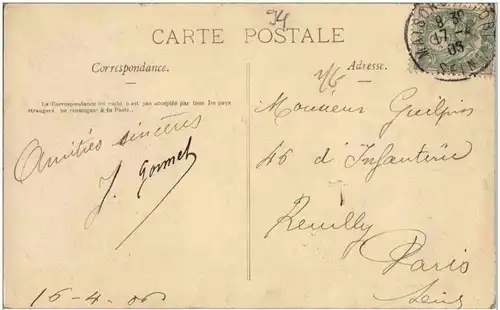 94
CARTE POSTALE
Correspondance.
Adresse.
La Correspondance au recto n'est pas acceptée par tous les pays
étrangers. Se renseigner à la Poste.
Amitiés sincères
J. Gormet
16-4-06
Monsieur Guilpin
46 d'Infanterie
Reuilly
Paris
Seine